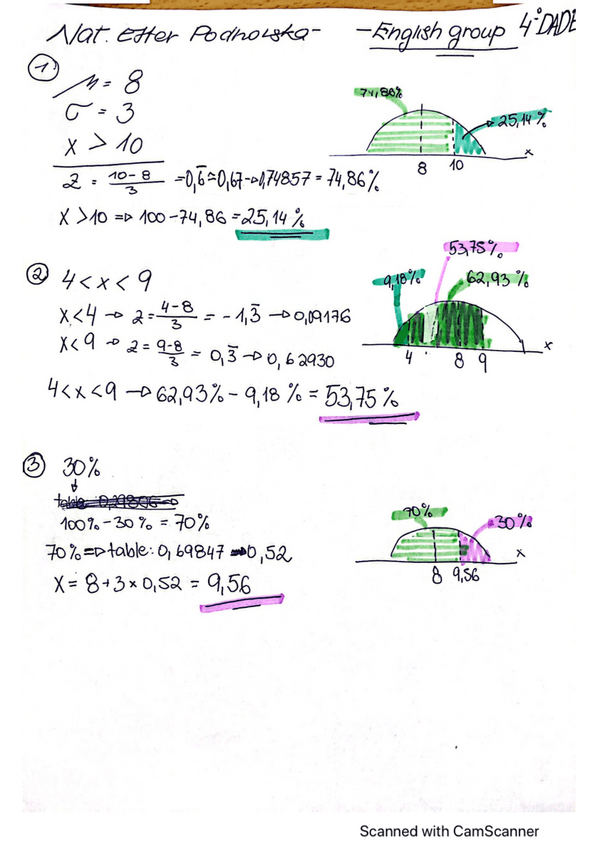 Nat. Etter Podhorska - - English group 4°DADE
1
μ = 8
σ = 3
x > 10
z = 10-8/3 = 0,6̄ ≃ 0,67 → 0,74857 = 74,86%
x > 10 ⇒ 100 - 74,86 = 25,14%
74,86%
25,14%
8 10 x
2 4 < x < 9
x < 4 → z = 4-8/3 = -1,3̄ → 0,09176
x < 9 → z = 9-8/3 = 0,3̄ → 0,62930
4 < x < 9 → 62,93% - 9,18% = 53,75%
53,75%
9,18% 62,93%
4 8 9 x
3 30%
100% - 30% = 70%
70% ⇒ table: 0,69847 → 0,52
x = 8 + 3 × 0,52 = 9,56
70% 30%
8 9,56 x
Scanned with CamScanner